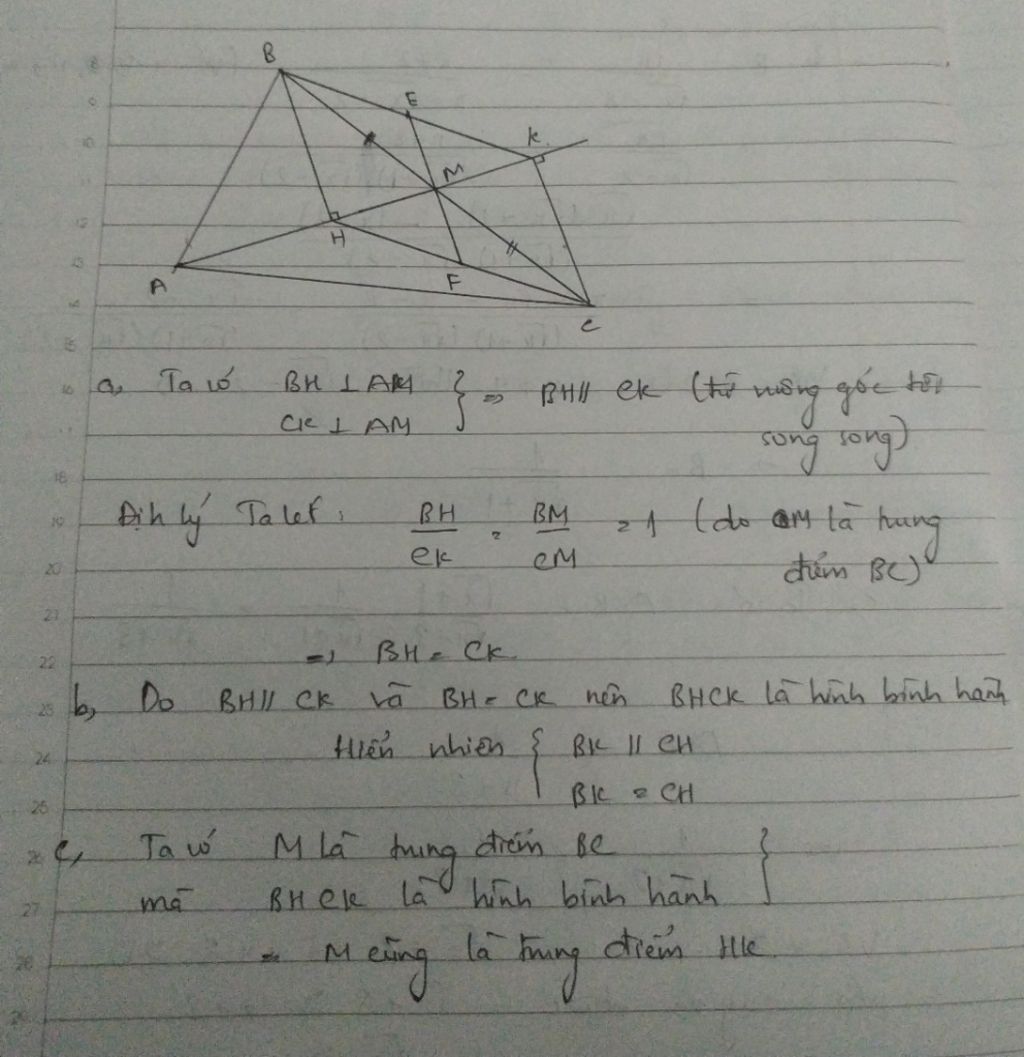 B
E
K
M
H
A
F
C
a, Ta có BH ⊥ AM } ⇒ BH // CK (từ vuông góc tới
CK ⊥ AM song song)
Định lý Talet: BH/CK = BM/CM = 1 (do M là trung
điểm BC)
⇒ BH = CK
b, Do BH // CK và BH = CK nên BHCK là hình bình hành
Hiển nhiên { BK // CH
BK = CH
c, Ta có M là trung điểm BC }
mà BHCK là hình bình hành
⇒ M cũng là trung điểm HK
16
17
18
19
20
21
22
23
24
25
26
27
28